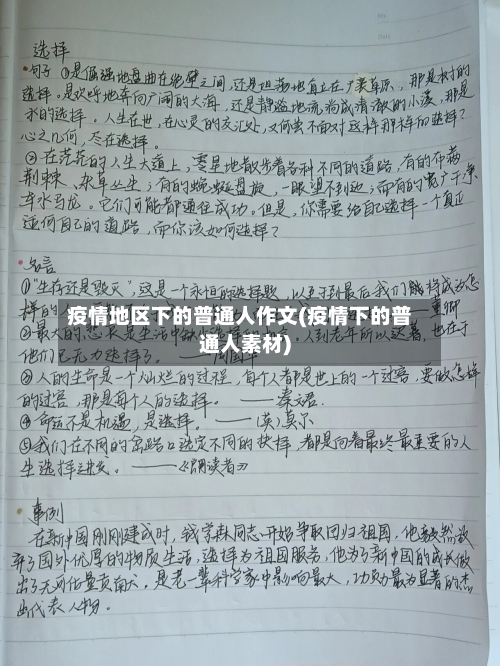 选择
·句子 ①是倔强地盘曲在绝壁之间,还是坦荡地直立在广袤草原,那是树的
选择。是欢呼地奔向广阔的大海,还是静谧地流淌成清澈的小溪,那是
水的选择。人生在世,在心灵的交汇处,又何尝不面对这样那样的选择?
心之几何,尽在选择。
②在茫茫的人生大道上,零星地散步着各种不同的道路,有的布满
荆棘、杂草丛生;有的蜿蜒盘旋,一眼望不到边;而有的宽广干净
车水马龙。它们可能都通往成功。但是,你需要给自己选择一个真正
适何自己的道路,而你该如何选择?
·名言
①"生存还是毁灭"这是一个永恒的选择题,以至于到最后我们能成为怎
样的
疫情地区下的普通人作文(疫情下的普
通人素材)
②最大的悲 是生活中 人到老年所以 也在于
他们已无力选择了。
③人的生命是一个灿烂的过程,每个人都是世上的一个过客,要做怎样
的过客,那是每个人的选择。——秦文君.
④命运不是机遇,是选择。——(英)莫尔
⑤我们在不同的岔路口选定不同的抉择,都是向着最终最重要的人
生选择进发。——《朗读者》
·事例
在新中国刚刚建成时,钱学森同志开始争取回归祖国,他毅然放
弃了国外优厚的物质生活,选择为祖国服务,他为了新中国的成长做
出了无可估量贡献,是老一辈科学家中影响最大,功勋最为显著的杰
出代表人物.